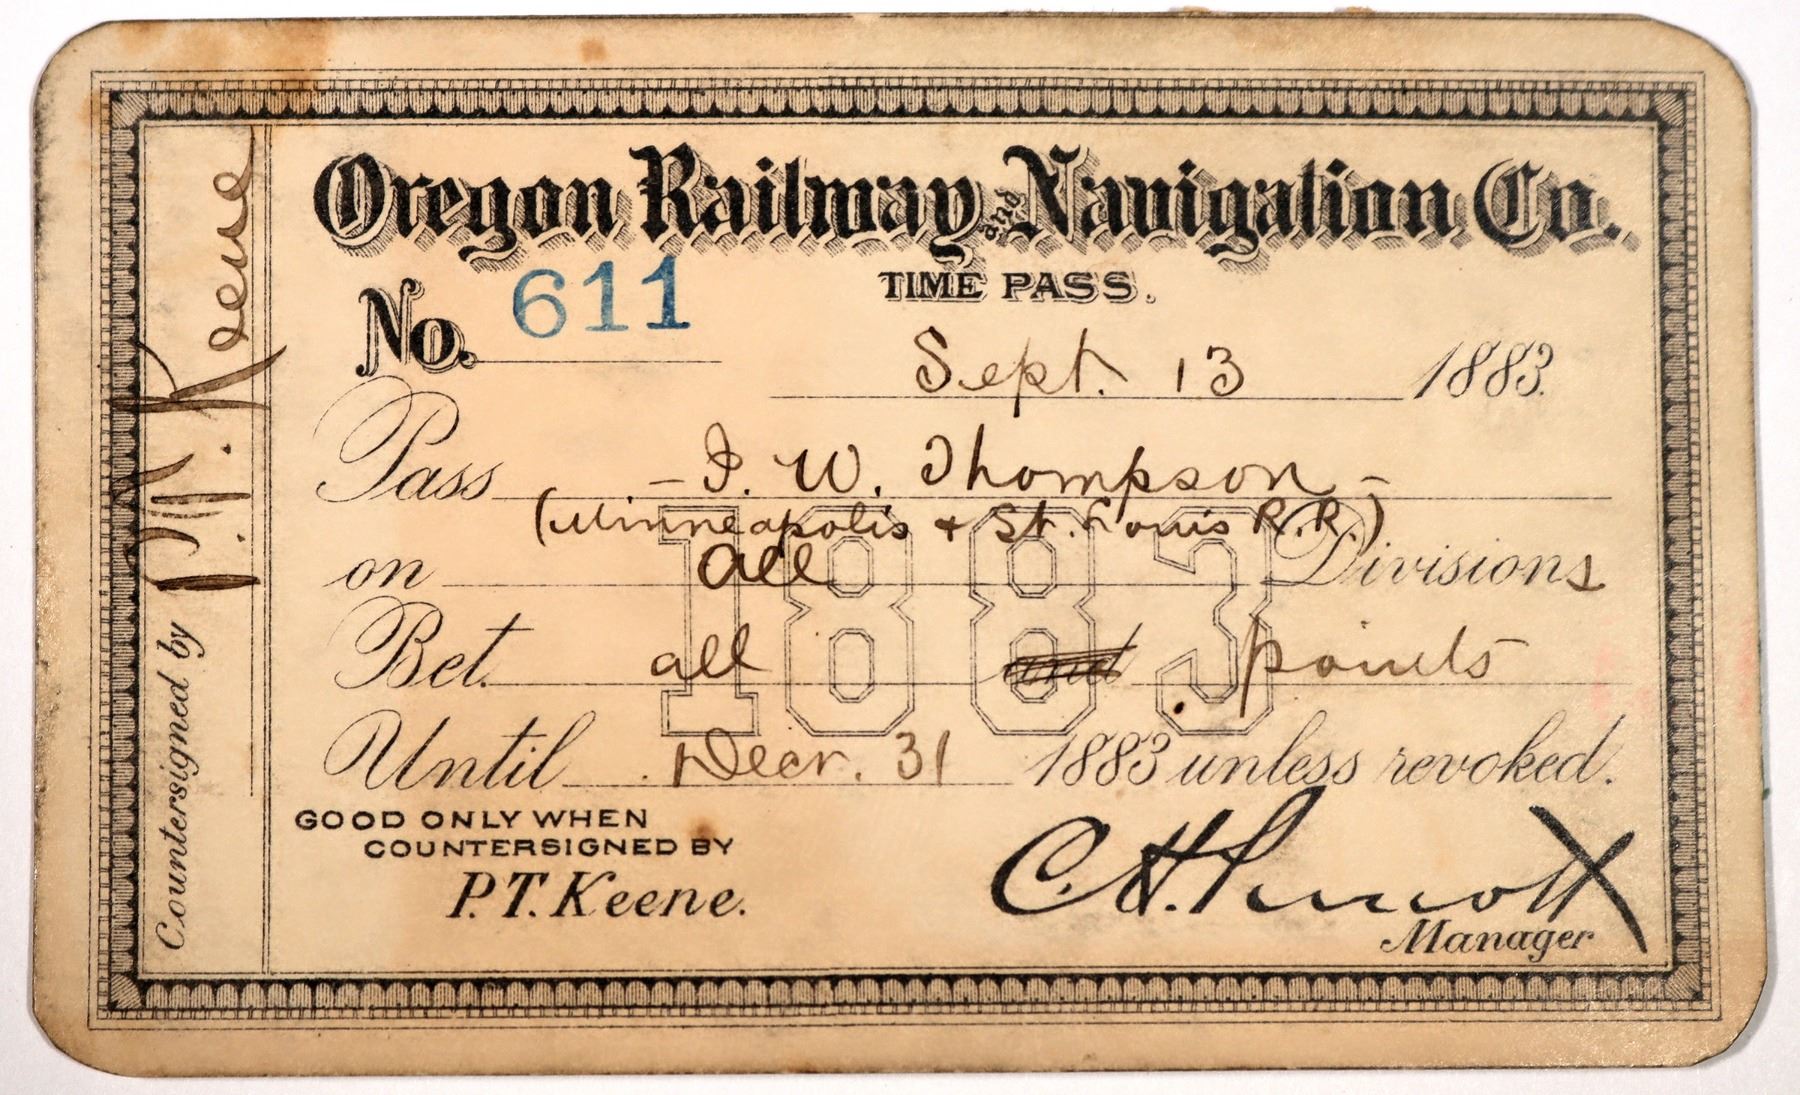 Oregon Railway and Navigation Co.
TIME PASS.
No. 611
Sept. 13 1883.
Pass - I. W. Thompson -
(Minneapolis + St. Louis R.R.)
on all Divisions
Bet. all and points
Until Decr. 31 1883 unless revoked.
1883
GOOD ONLY WHEN
COUNTERSIGNED BY
P.T. Keene.
C. H. Prescott
Manager
Countersigned by P.T. Keene